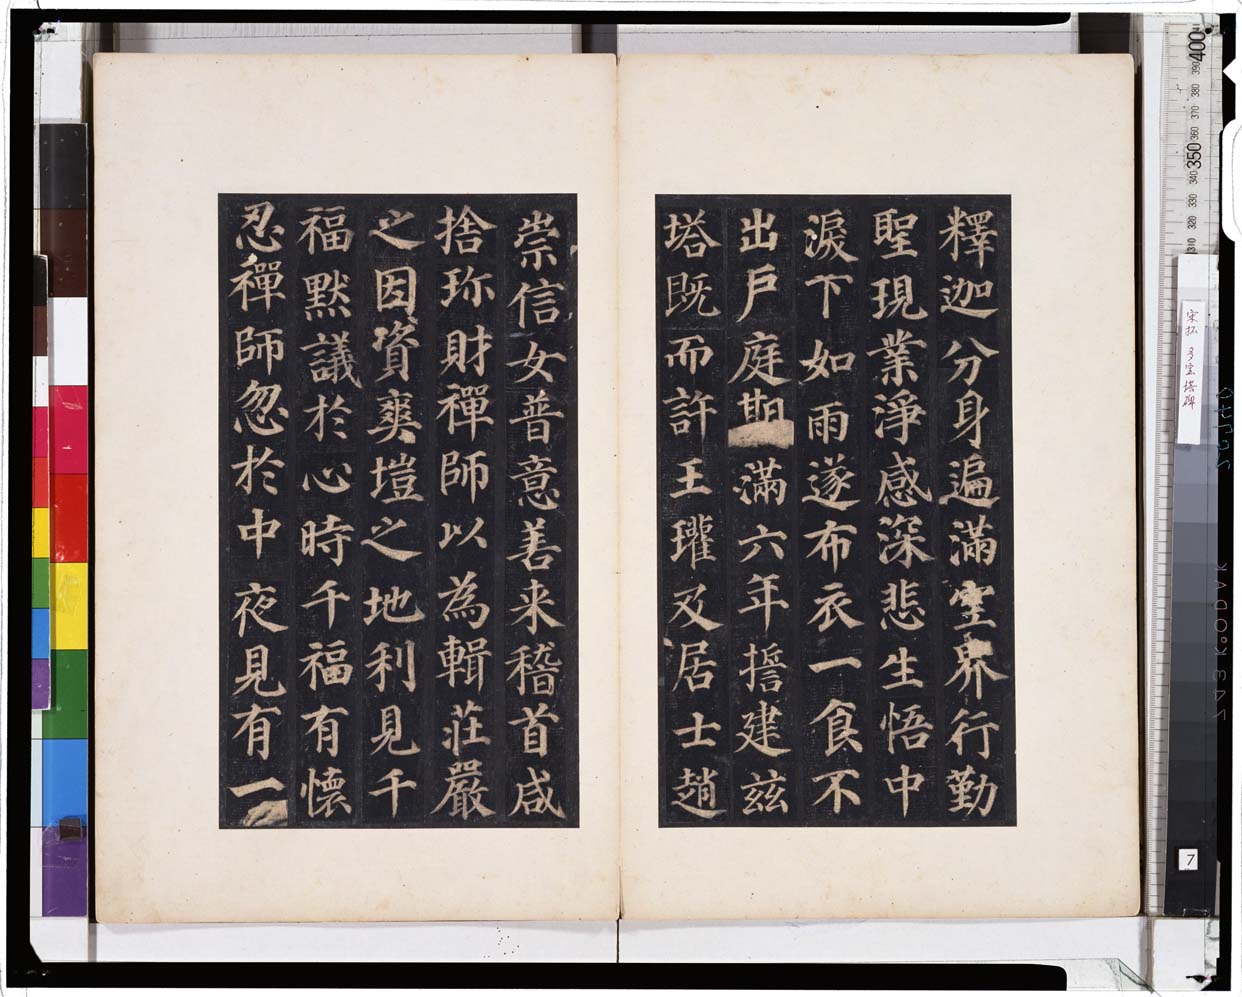 釋迦分身遍滿空界行勤
聖現業淨感深悲生悟中
淚下如雨遂布衣一食不
出戶庭期滿六年誓建茲
塔既而許王瓘及居士趙
崇信女普意善来稽首咸
捨珎財禪師以為輯莊嚴
之因資爽塏之地利見千
福默議於心時千福有懷
忍禪師忽於中夜見有一
宋拓 多宝塔碑
7
400
390
380
370
360
350
340
330
320
310